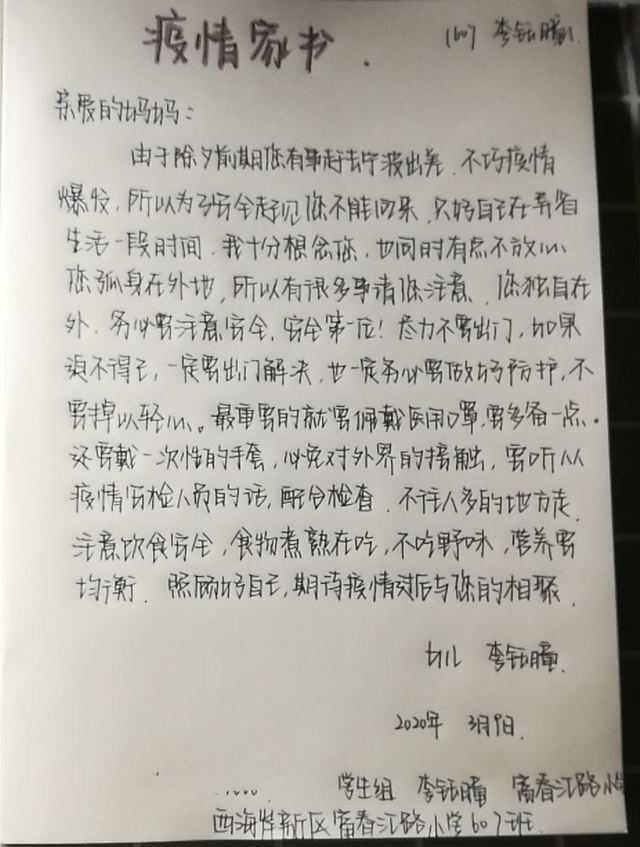 疫情家书.
607 李钰瞳
亲爱的妈妈:
由于除夕前期您有事赶去宁波出差.不巧疫情
爆发,所以为了安全起见您不能回来,只好自己在青岛
生活一段时间.我十分想念您,也同时有点不放心
您孤身在外地,所以有很多事请您注意.您独自在
外.务必要注意安全,安全第一位!尽力不要出门,如果
迫不得已,一定要出门解决,也一定务必要做好防护,不
要掉以轻心。最重要的就要佩戴医用口罩,要多备一点。
还要戴一次性的手套,避免对外界的接触,要听从
疫情安检人员的话,配合检查.不往人多的地方走.
注意饮食安全,食物煮熟在吃,不吃野味,营养要
均衡.照顾好自己,期待疫情过后与您的相聚.
女儿 李钰瞳.
2020年 3月9日.
学生组 李钰瞳 富春江路小学
西海岸新区富春江路小学607班.